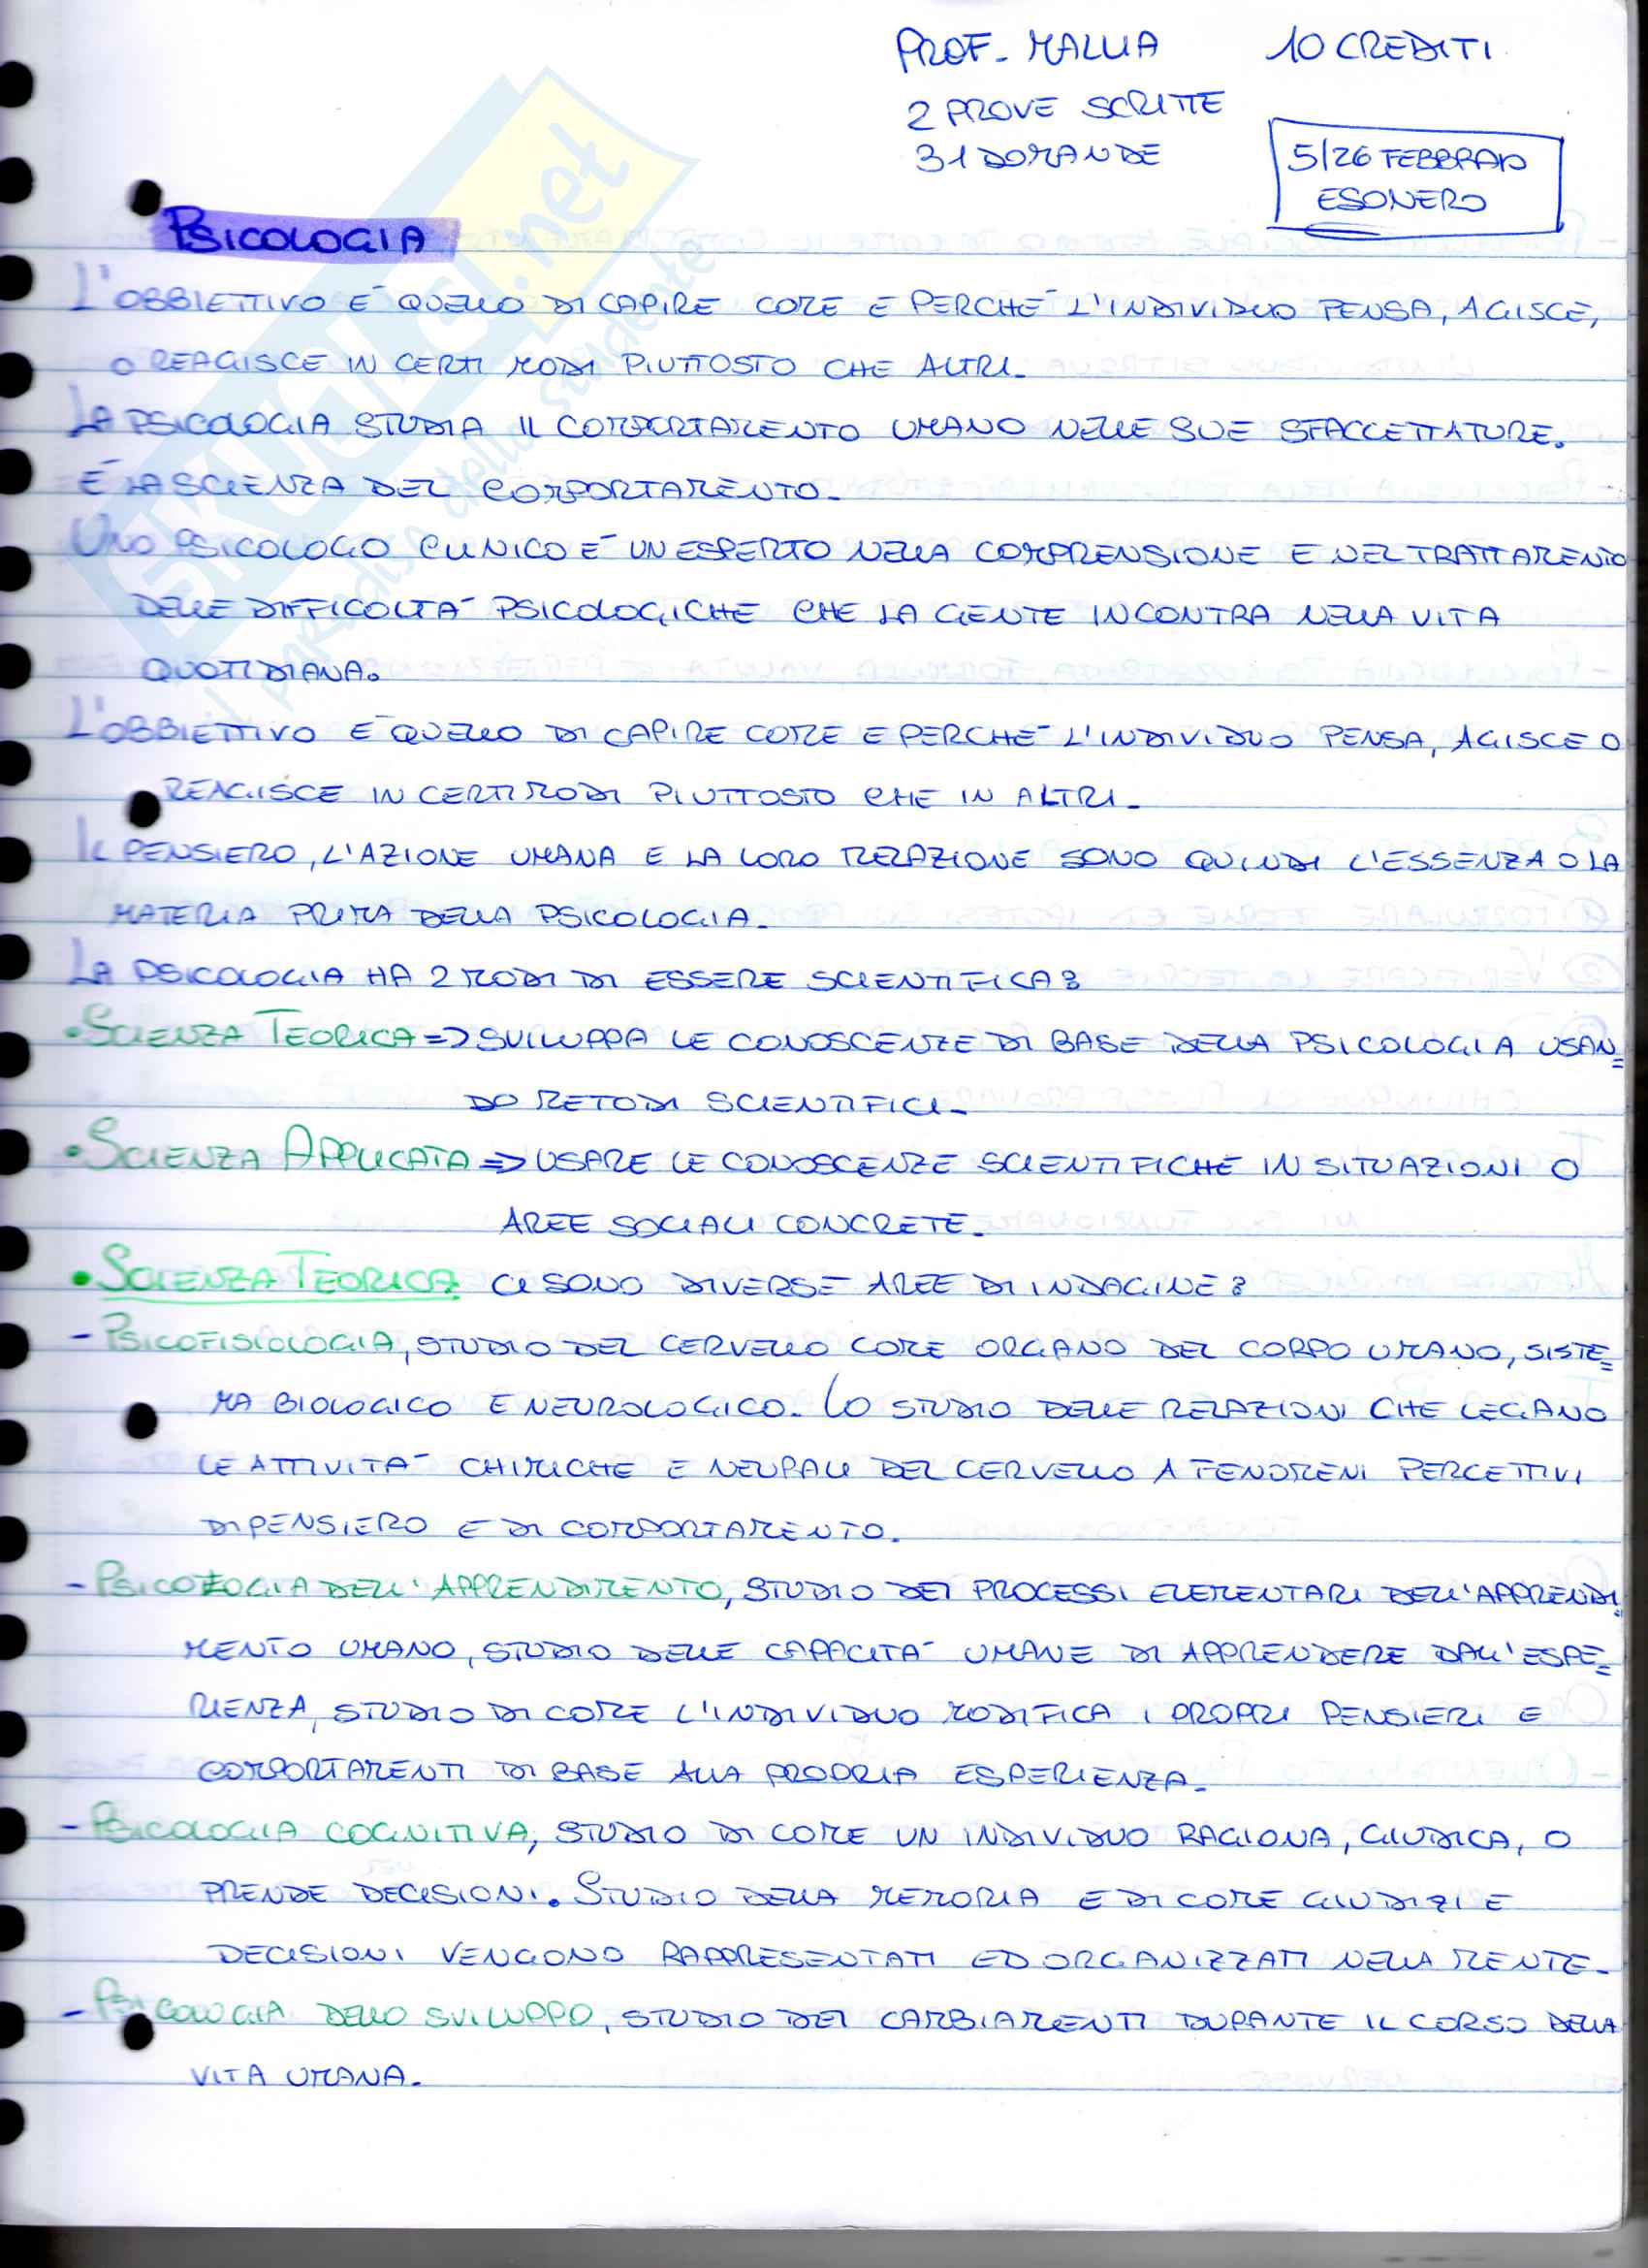 PROF. MALLIA 10 CREDITI
2 PROVE SCRITTE
31 DOMANDE
5/26 FEBBRAIO
ESONERO
SKUOLA.net
il paradiso dello studente
PSICOLOGIA
L'OBBIETTIVO E' QUELLO DI CAPIRE COME E PERCHE' L'INDIVIDUO PENSA, AGISCE,
O REAGISCE IN CERTI MODI PIUTTOSTO CHE ALTRI.
LA PSICOLOGIA STUDIA IL COMPORTAMENTO UMANO NELLE SUE SFACCETTATURE.
E' LA SCIENZA DEL COMPORTAMENTO.
UNO PSICOLOGO CLINICO E' UN ESPERTO NELLA COMPRENSIONE E NEL TRATTAMENTO
DELLE DIFFICOLTA' PSICOLOGICHE CHE LA GENTE INCONTRA NELLA VITA
QUOTIDIANA.
L'OBBIETTIVO E' QUELLO DI CAPIRE COME E PERCHE' L'INDIVIDUO PENSA, AGISCE O
REAGISCE IN CERTI MODI PIUTTOSTO CHE IN ALTRI.
IL PENSIERO, L'AZIONE UMANA E LA LORO RELAZIONE SONO QUINDI L'ESSENZA O LA
MATERIA PRIMA DELLA PSICOLOGIA.
LA PSICOLOGIA HA 2 MODI DI ESSERE SCIENTIFICA:
• SCIENZA TEORICA => SVILUPPA LE CONOSCENZE DI BASE DELLA PSICOLOGIA USAN=
DO METODI SCIENTIFICI.
• SCIENZA APPLICATA => USARE LE CONOSCENZE SCIENTIFICHE IN SITUAZIONI O
AREE SOCIALI CONCRETE.
• SCIENZA TEORICA CI SONO DIVERSE AREE DI INDAGINE:
- PSICOFISIOLOGIA, STUDIO DEL CERVELLO COME ORGANO DEL CORPO UMANO, SISTE=
MA BIOLOGICO E NEUROLOGICO. LO STUDIO DELLE RELAZIONI CHE LEGANO
LE ATTIVITA' CHIMICHE E NEURALI DEL CERVELLO A FENOMENI PERCETTIVI
DI PENSIERO E DI COMPORTAMENTO.
- PSICOLOGIA DELL'APPRENDIMENTO, STUDIO DEI PROCESSI ELEMENTARI DELL'APPRENDI=
MENTO UMANO, STUDIO DELLE CAPACITA' UMANE DI APPRENDERE DALL'ESPE=
RIENZA, STUDIO DI COME L'INDIVIDUO MODIFICA I PROPRI PENSIERI E
COMPORTAMENTI DI BASE ALLA PROPRIA ESPERIENZA.
- PSICOLOGIA COGNITIVA, STUDIO DI COME UN INDIVIDUO RAGIONA, GIUDICA, O
PRENDE DECISIONI. STUDIO DELLA MEMORIA E DI COME GIUDIZI E
DECISIONI VENGONO RAPPRESENTATI ED ORGANIZZATI NELLA MENTE.
- PSICOLOGIA DELLO SVILUPPO, STUDIO DEI CAMBIAMENTI DURANTE IL CORSO DELLA
VITA UMANA.